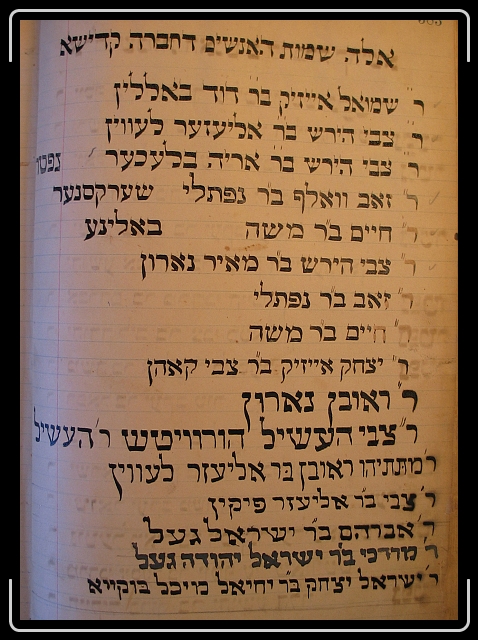 אלה שמות האנשים דחברה קדישא
ר' שמואל אייזיק בר דוד באללין
ר' צבי הירש בר אליעזער לעווין
ר' צבי הירש בר אריה בלעכער נפטר
ר' זאב וואלף ב"ר נפתלי שערקסנער
ר' חיים ב"ר משה באלינע
ר' צבי הירש ב"ר מאיר נארון
ר' זאב ב"ר נפתלי
ר' חיים ב"ר משה
ר' יצחק אייזיק ב"ר צבי קאהן
ר' ראובן נארון
ר' צבי העשיל הורוויטש ר' העשיל
ר' מתתיהו ראובן ב"ר אליעזר לעווין
ר' צבי ב"ר אליעזר פיקיץ
ר' אברהם ב"ר ישראל געל
ר' מרדכי ב"ר ישראל יהודה געל
ר' ישראל יצחק ב"ר יחיאל מיכל בוקייא